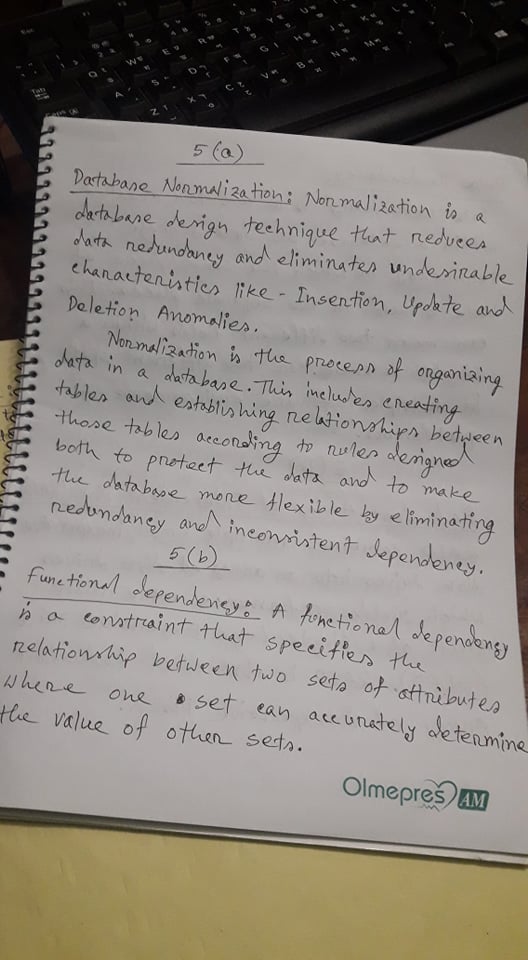 5(a)
Database Normalization: Normalization is a
database design technique that reduces
data redundancy and eliminates undesirable
characteristics like - Insertion, Update and
Deletion Anomalies.
Normalization is the process of organizing
data in a database. This includes creating
tables and establishing relationships between
those tables according to rules designed
both to protect the data and to make
the database more flexible by eliminating
redundancy and inconsistent dependency.
5(b)
Functional dependency: A functional dependency
is a constraint that specifies the
relationship between two sets of attributes
where one set can accurately determine
the value of other sets.
Olmepres AM